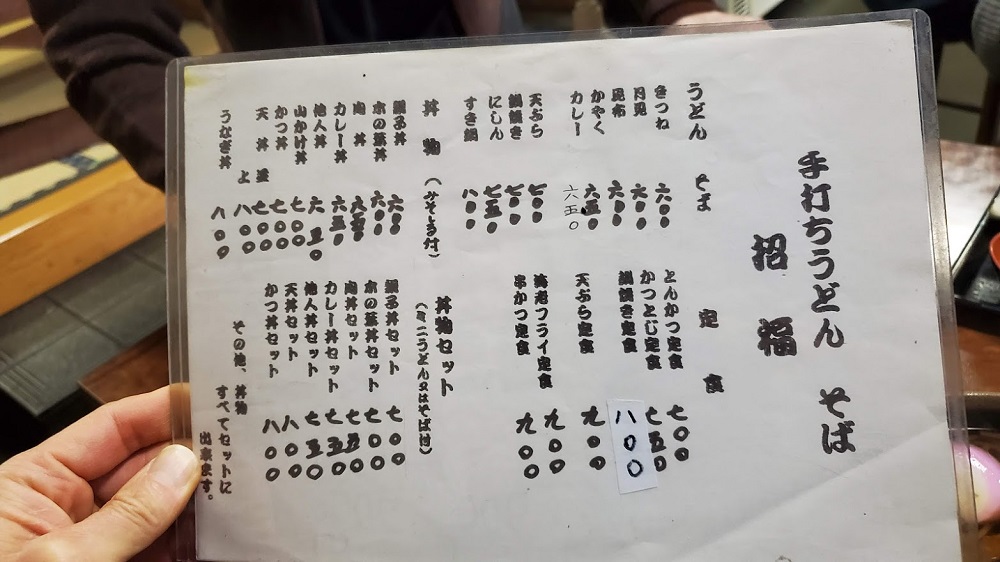 手打ちうどん そば
招福
うどん そば
きつね 六〇〇
月見 六〇〇
昆布 六〇〇
かやく 六五〇
カレー 六五〇
天ぷら 七〇〇
鍋焼き 七〇〇
にしん 七五〇
すき鍋 八〇〇
丼物（みそしる付）
親子丼 六〇〇
木の葉丼 六〇〇
肉丼 六五〇
カレー丼 六五〇
他人丼 六五〇
山かけ丼 七〇〇
かつ丼 七〇〇
天丼 並 七〇〇
上 八〇〇
うなぎ丼 八〇〇
定食
とんかつ定食 七〇〇
かつとじ定食 七五〇
鍋焼き定食 八〇〇
天ぷら定食 九〇〇
海老フライ定食 九〇〇
串かつ定食 九〇〇
丼物セット
（ミニうどん又はそば付）
親子丼セット 七〇〇
木の葉丼セット 七〇〇
肉丼セット 七五〇
カレー丼セット 七五〇
他人丼セット 七五〇
天丼セット 八〇〇
かつ丼セット 八〇〇
その他、丼物
すべてセットに
出来ます。